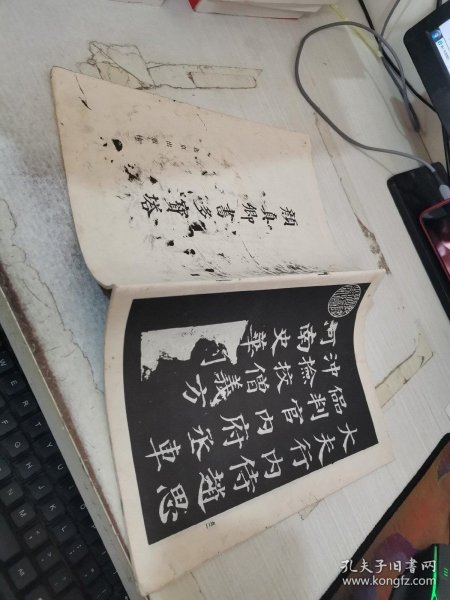 顏真卿書多寶塔
大夫行內侍趙思
偘判官內府丞車
沖檢校僧義方
河南史華刊
孔夫子旧书网
www.kongfz.com